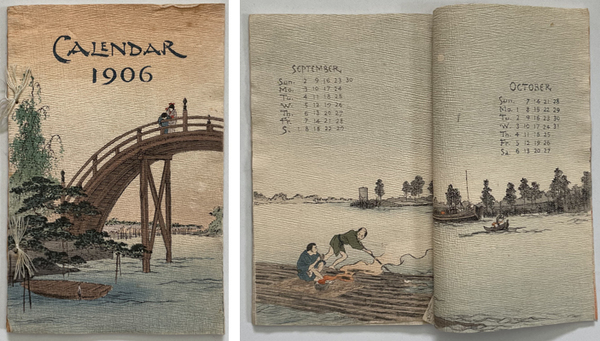 CALENDAR
1906
SEPTEMBER
Sun. 2 9 16 23 30
Mo. 3 10 17 24
Tu. 4 11 18 25
W. 5 12 19 26
Th. 6 13 20 27
Fr. 7 14 21 28
S. 1 8 15 22 29
OCTOBER
Sun. 7 14 21 28
Mo. 1 8 15 22 29
Tu. 2 9 16 23 30
W. 3 10 17 24 31
Th. 4 11 18 25
Fr. 5 12 19 26
Sa. 6 13 20 27